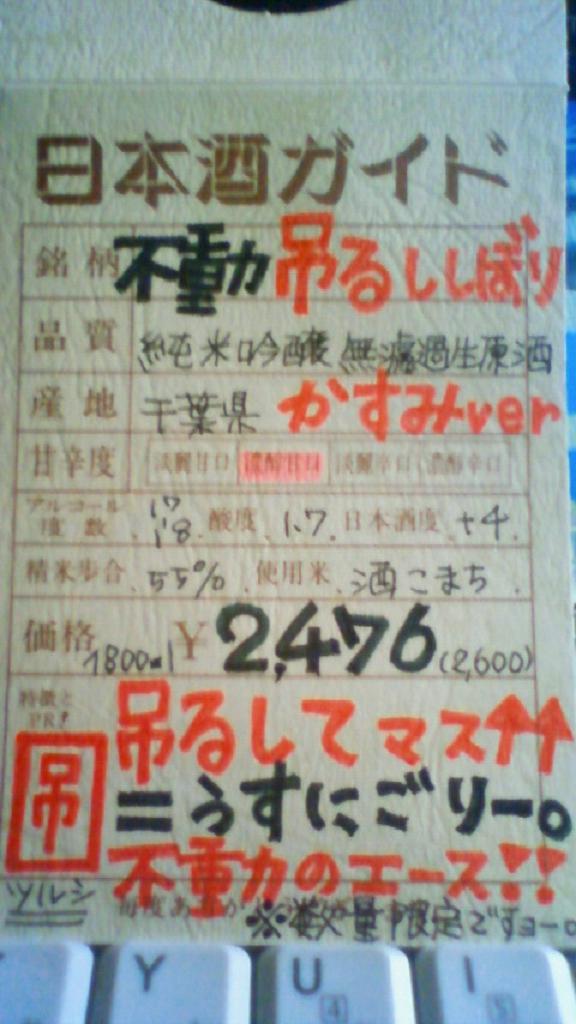 日本酒ガイド
銘柄 不動 吊るししぼり
品質 純米吟醸 無濾過生原酒
産地 千葉県 かすみver
甘辛度 淡麗甘口 濃醇甘口 淡麗辛口 濃醇辛口
アルコール度数 17 18 酸度 1.7 日本酒度 +4
精米歩合 55% 使用米 酒こまち
価格 1800ml ¥2,476 (2,600)
特徴とPR!
吊るしてマス↑↑
吊 =うすにごりー。
不動のエース!!
ツルシ
※数量限定ですヨー。
Y U I
4 5